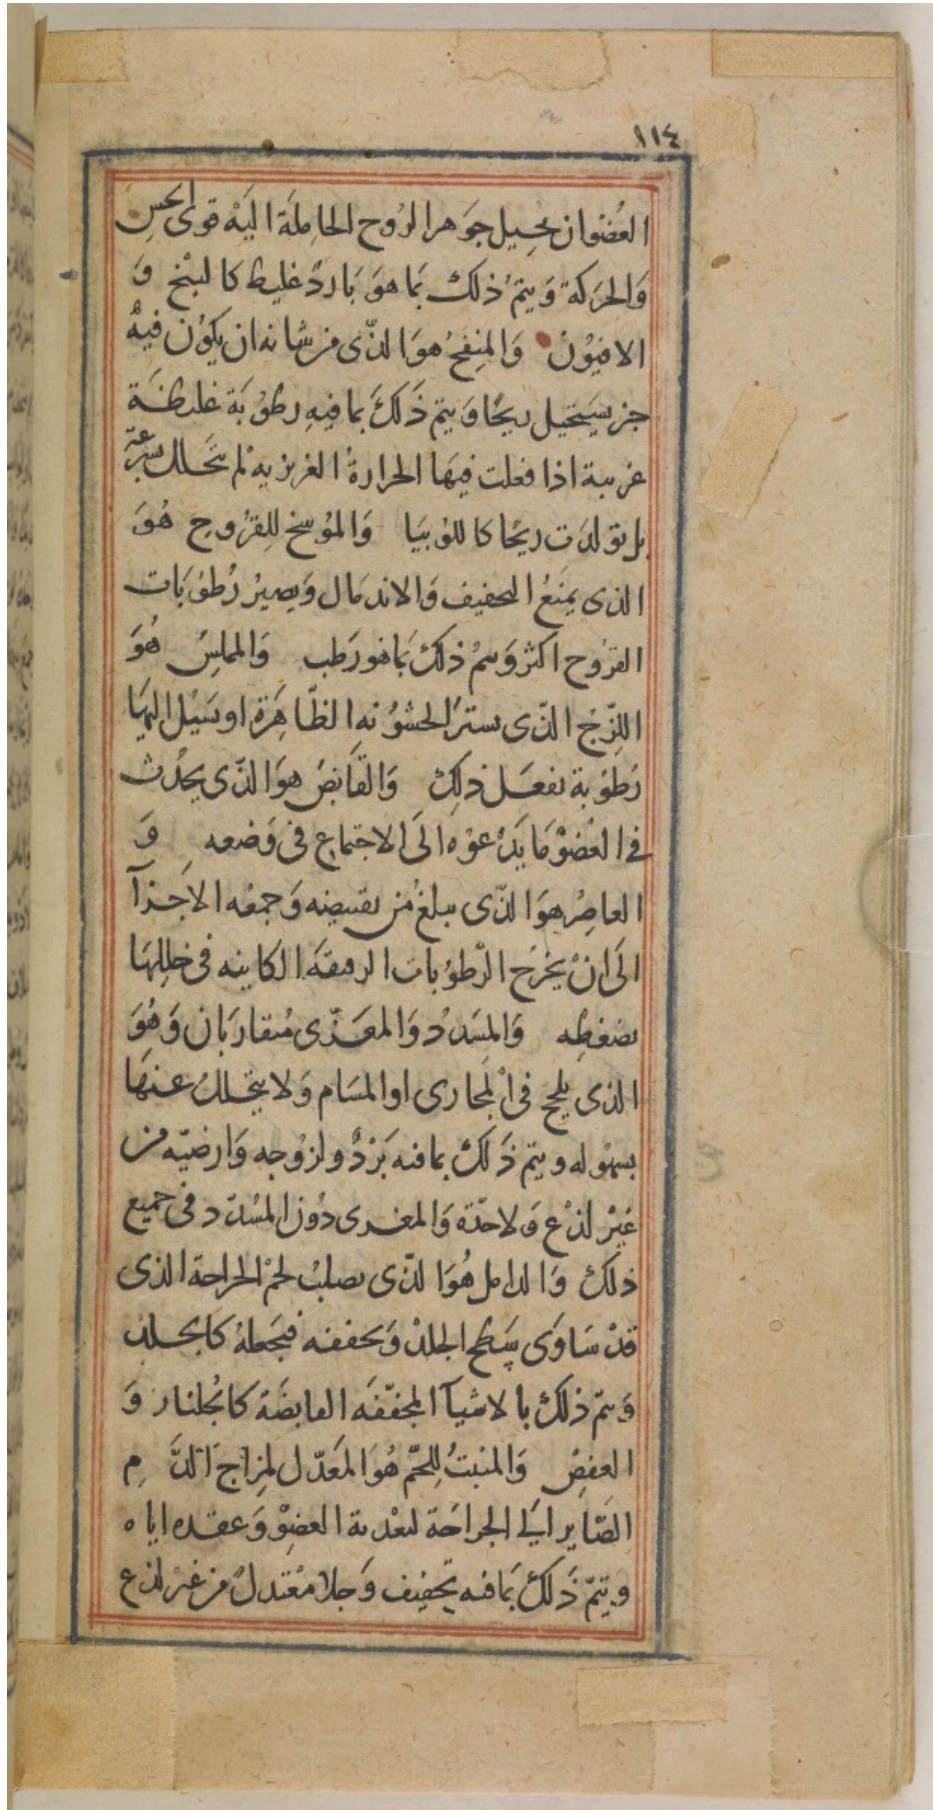 ١١٤
العُضوان يحيل جَوهر الرُوح الحامِلَة اليَه قوى الحِسِ
وَالحَركة وَيتمُ ذلك بَما هوَ بَاردٌ غليظ كالبنْج وَ
الافيُون وَالمنِفخُ هوَ الذّى من شانه ان يكوُن فيهُ
جز يسَتحيل ريحًا وَ يتم ذَلكَ بما فيهِ رطوُبَة غليظَة
غريبة اذا فعلت فيهَا الحرارةُ الغريزيه لم تتحَلل بسُرعَة
بل تولدَت ريحًا كاللوُبيَا وَالموُسخ للِقرُوحِ هُوَ
الذى يمنَعُ التجفيف وَالاندمَال وَيصيرُ رُطوُبَات
القرُوح اكثر وَيتمُ ذلك بمَا هو رَطب وَالمملسُ هُوَ
اللِزّجُ الذّى يسترُ الخشوُنه الظّاهِرَة او يسَيّل اليهَا
رُطوُبة تفعَل ذلِك وَالقَابضُ هوَ الذّى يحدُث
فى العُضوْ مَا يَدْعوُه الَى الاجتماع فى وَضعه وَ
العاصِرُ هوَ الذّى يبلغُ من تقبيضِه وَجمعُه الاَجزآ
الَى انْ يخرَج الرّطوُبات الرقيقَه الكاينه فى خللِهَا
بضغطِه وَالمسَددُ وَالمغَرّى مُتقاربَان وَهُوَ
الذى يلحج فى المجارى اوالمسَام وَلا يتحَللُ عنهَا
بسهوُله ويتم ذَلكَ بما فيه بَرْدٌ ولزوُجه وَارضيّه من
غيَرْ لذْع وَلاحدّة وَالمغرى دُون المسُدّد فى جميع
ذلكَ وَالدامل هُوَ الذّى يصلبُ لحْم الجراحة الذى
قدْ سَاوَى سَطح الجلدْ وَيجففه فيجَعلهُ كالجلد
وَيتم ذلكَ بالاشيآ المجفّفَه القابضَة كالجُلنار وَ
العفِصْ وَالمنبتُ للِحّم هُوَ المعَدّل لمِزاج الدَّمِ
الصّاير الَى الجراحَة لتغذية العضِوْ وَعقده اياه
ويتمّ ذَلكَ بمَا فيه تجفيف وَجلا معْتدل من غير لذع